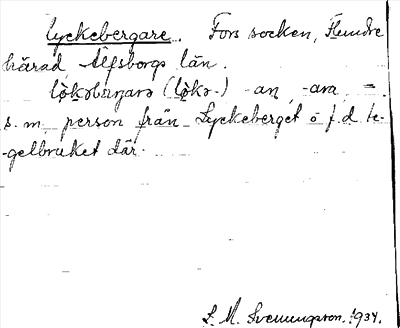 lyckebergare. Fors socken, Flundre
härad Älfsborgs län.
(lökə-) -an, -ara, =.
s. m. person från Lyckeberget o. f. d. te-
gelbruket där.
S. M. Svenungsson. 1934.